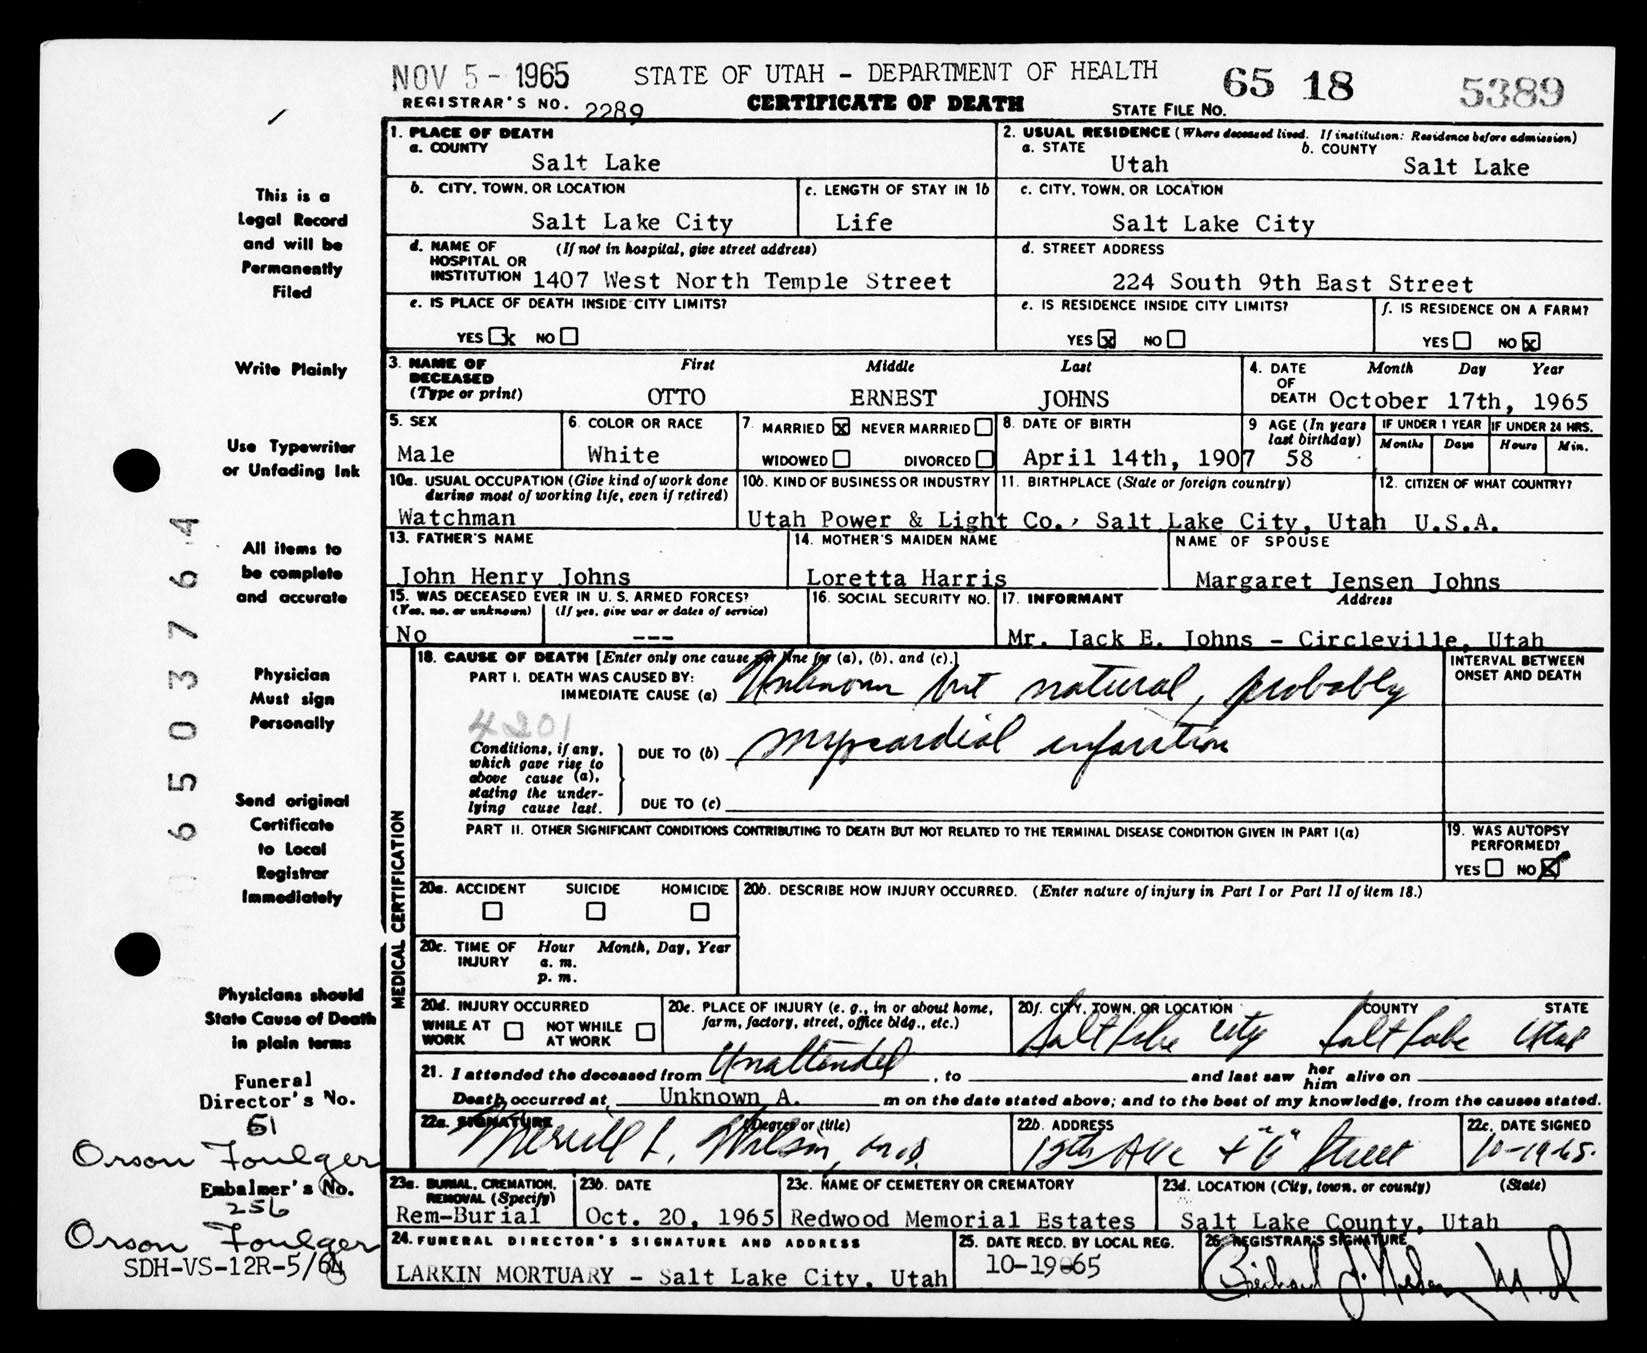 NOV 5 - 1965 STATE OF UTAH - DEPARTMENT OF HEALTH 65 18 5389
REGISTRAR'S NO. 2289 CERTIFICATE OF DEATH STATE FILE NO.
1. PLACE OF DEATH
a. COUNTY
Salt Lake
2. USUAL RESIDENCE (Where deceased lived. If institution: Residence before admission)
a. STATE b. COUNTY
Utah Salt Lake
b. CITY, TOWN, OR LOCATION c. LENGTH OF STAY IN 1b c. CITY, TOWN, OR LOCATION
Salt Lake City Life Salt Lake City
d. NAME OF (If not in hospital, give street address)
HOSPITAL OR
INSTITUTION 1407 West North Temple Street
d. STREET ADDRESS
224 South 9th East Street
e. IS PLACE OF DEATH INSIDE CITY LIMITS?
YES x NO
e. IS RESIDENCE INSIDE CITY LIMITS?
YES x NO
f. IS RESIDENCE ON A FARM?
YES NO x
3. NAME OF DECEASED (Type or print)
First Middle Last
OTTO ERNEST JOHNS
4. DATE OF DEATH
Month Day Year
October 17th, 1965
5. SEX
Male
6. COLOR OR RACE
White
7. MARRIED x NEVER MARRIED
WIDOWED DIVORCED
8. DATE OF BIRTH
April 14th, 1907
9 AGE (In years last birthday)
58
IF UNDER 1 YEAR IF UNDER 24 HRS.
Months Days Hours Min.
10a. USUAL OCCUPATION (Give kind of work done
during most of working life, even if retired)
Watchman
10b. KIND OF BUSINESS OR INDUSTRY
Utah Power & Light Co.
11. BIRTHPLACE (State or foreign country)
Salt Lake City, Utah
12. CITIZEN OF WHAT COUNTRY?
U.S.A.
13. FATHER'S NAME
John Henry Johns
14. MOTHER'S MAIDEN NAME
Loretta Harris
NAME OF SPOUSE
Margaret Jensen Johns
15. WAS DECEASED EVER IN U. S. ARMED FORCES?
(Yes, no, or unknown) (If yes, give war or dates of service)
No ---
16. SOCIAL SECURITY NO.
17. INFORMANT Address
Mr. Jack E. Johns - Circleville, Utah
MEDICAL CERTIFICATION
18. CAUSE OF DEATH [Enter only one cause per line for (a), (b), and (c).]
INTERVAL BETWEEN
ONSET AND DEATH
PART I. DEATH WAS CAUSED BY:
IMMEDIATE CAUSE (a) Unknown but natural, probably
4201
Conditions, if any,
which gave rise to
above cause (a),
stating the under-
lying cause last.
DUE TO (b) myocardial infarction
DUE TO (c)
PART II. OTHER SIGNIFICANT CONDITIONS CONTRIBUTING TO DEATH BUT NOT RELATED TO THE TERMINAL DISEASE CONDITION GIVEN IN PART I(a)
19. WAS AUTOPSY
PERFORMED?
YES NO x
20a. ACCIDENT SUICIDE HOMICIDE
20b. DESCRIBE HOW INJURY OCCURRED. (Enter nature of injury in Part I or Part II of item 18.)
20c. TIME OF Hour Month, Day, Year
INJURY a. m.
p. m.
20d. INJURY OCCURRED
WHILE AT WORK NOT WHILE AT WORK
20e. PLACE OF INJURY (e. g., in or about home,
farm, factory, street, office bldg., etc.)
20f. CITY, TOWN, OR LOCATION COUNTY STATE
Salt Lake City Salt Lake Utah
21. I attended the deceased from Unattended, to and last saw her him alive on
Death occurred at Unknown A. m on the date stated above; and to the best of my knowledge, from the causes stated.
22a. SIGNATURE (Degree or title)
Merrill L. Wilson, M.D.
22b. ADDRESS
12th Ave + "G" Street
22c. DATE SIGNED
10-19-65.
23a. BURIAL, CREMATION,
REMOVAL (Specify)
Rem-Burial
23b. DATE
Oct. 20, 1965
23c. NAME OF CEMETERY OR CREMATORY
Redwood Memorial Estates
23d. LOCATION (City, town, or county) (State)
Salt Lake County, Utah
24. FUNERAL DIRECTOR'S SIGNATURE AND ADDRESS
LARKIN MORTUARY - Salt Lake City, Utah
25. DATE RECD. BY LOCAL REG.
10-19-65
26. REGISTRAR'S SIGNATURE
Richard M.D
This is a
Legal Record
and will be
Permanently
Filed
Write Plainly
Use Typewriter
or Unfading Ink
All items to
be complete
and accurate
Physician
Must sign
Personally
Send original
Certificate
to Local
Registrar
Immediately
Physicians should
State Cause of Death
in plain terms
Funeral
Director's No.
51
Orson Foulger
Embalmer's No.
256
Orson Foulger
SDH-VS-12R-5/64
6503764